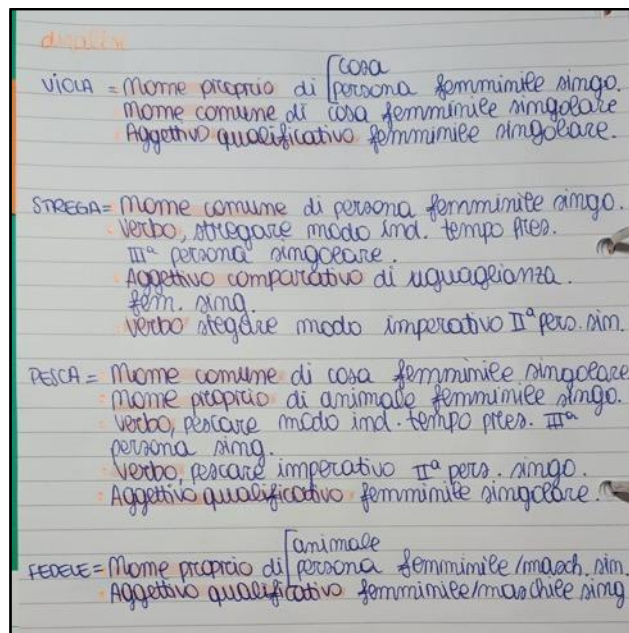 analisi
cosa
VIOLA = Nome proprio di [persona femminile singo.
Nome comune di cosa femminile singolare
Aggettivo qualificativo femminile singolare.
STREGA= Nome comune di persona femminile singo.
verbo, stregare modo ind. tempo pres.
IIIª persona singolare.
Aggettivo comparativo di uguaglianza.
fem. sing.
verbo stegare modo imperativo IIª pers. sin.
PESCA = Nome comune di cosa femminile singolare
Nome proprio di animale femminile singo.
verbo, pescare modo ind. tempo pres. IIIª
persona sing.
verbo, pescare imperativo IIª pers. singo.
Aggettivo qualificativo femminile singolare.
animale
FEDELE = Nome proprio di [persona femminile/masch. sin.
Aggettivo qualificativo femminile/maschile sing